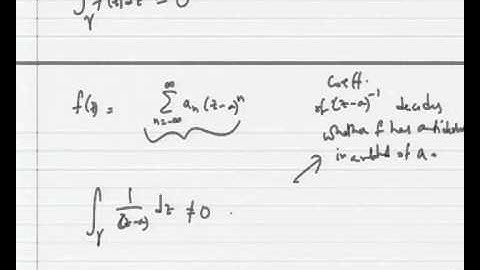 ∫_γ f(z) dz = 0
f(z) = ∑_{n=-∞}^{∞} a_n (z-a)^n
coeff.
of (z-a)^{-1} decides
whether f has antideriv
in a nbhd of a.
∫_γ 1/(z-a) dz ≠ 0.